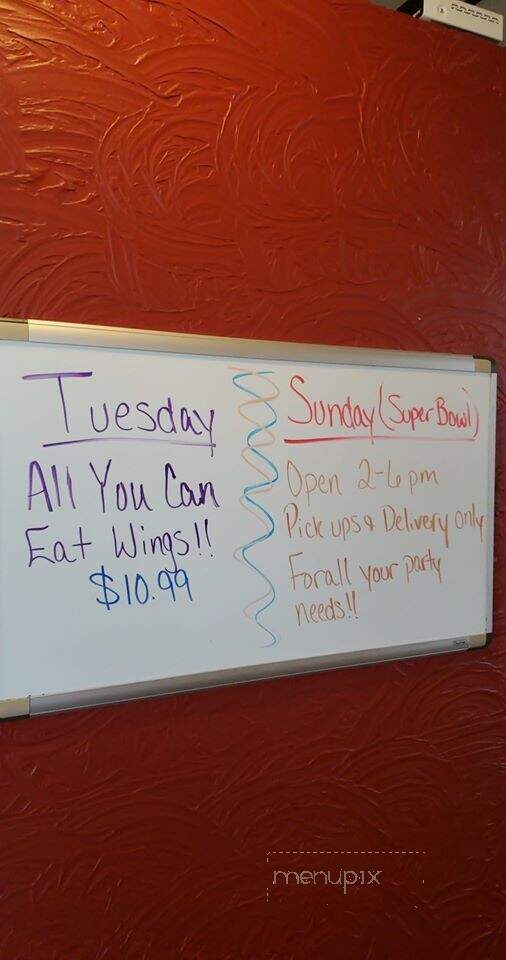 Tuesday
All You Can
Eat Wings!!
$10.99
Sunday (Super Bowl)
Open 2-6 pm
Pick ups & Delivery only
For all your party
needs!!
menupix